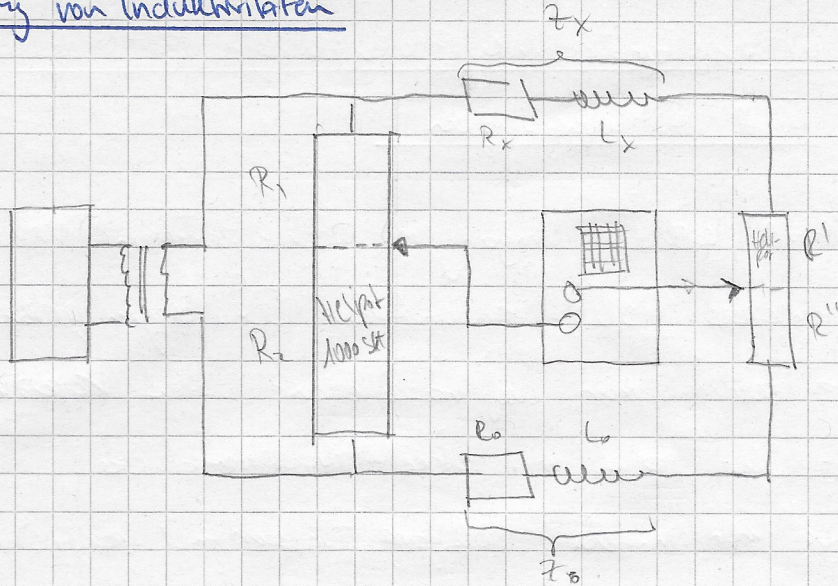 von Induktivitäten
Z_X
R_X
L_X
R_1
R_2
Helipot
1000 Skt
Heli-
pot
R'
R''
R_0
L_0
Z_0